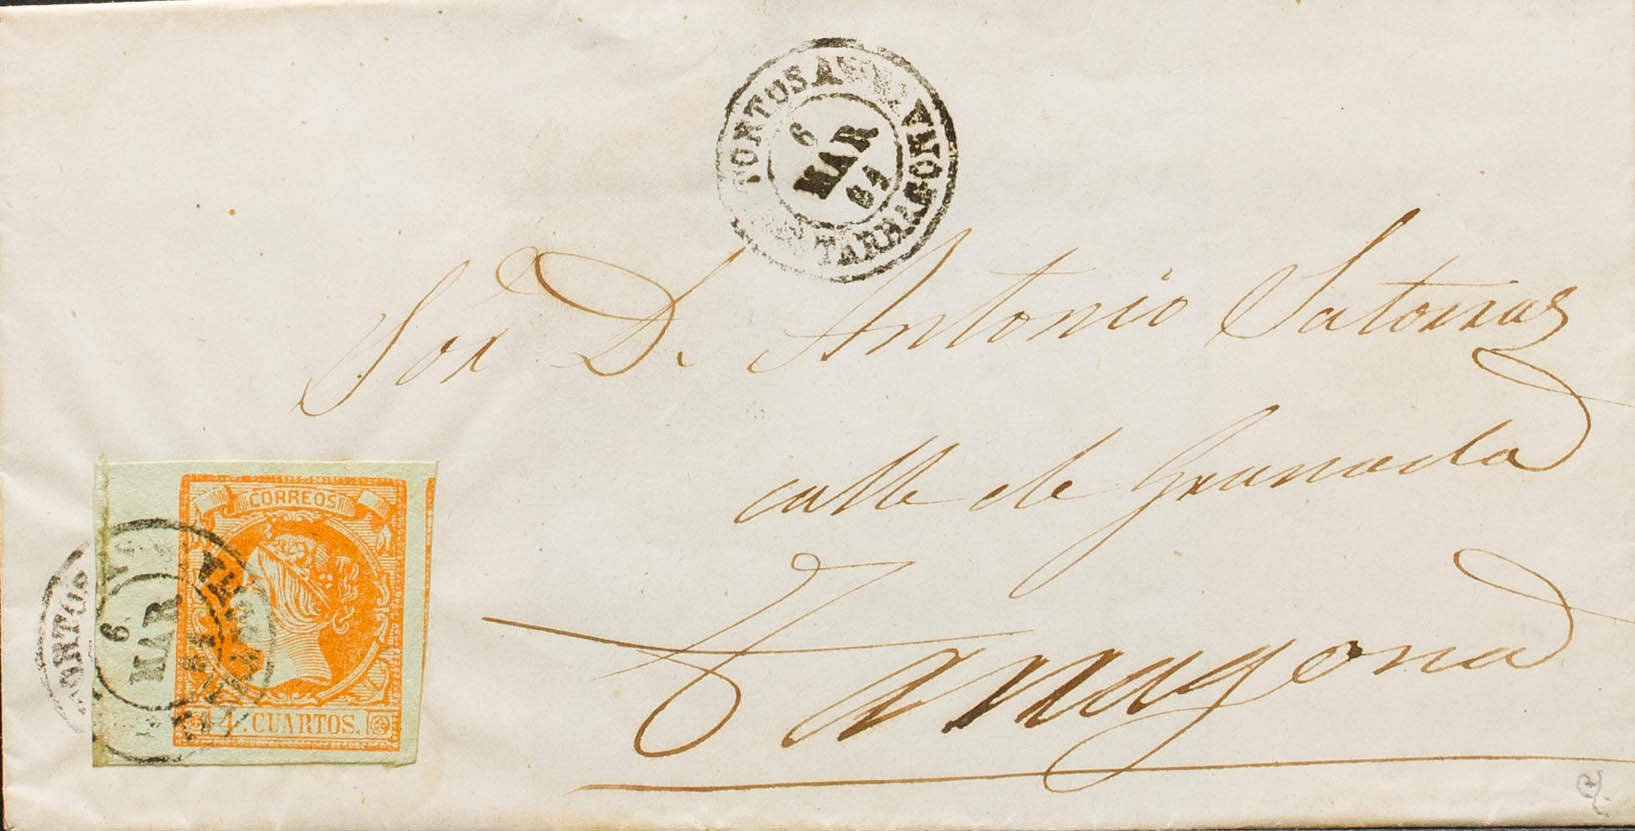 TORTOSA
6
MAR
61
TARRAGONA
Sor. D. Antonio Satorras
calle de Granada
Tarragona
CORREOS
4 CUARTOS.
TORTOS
6
MAR